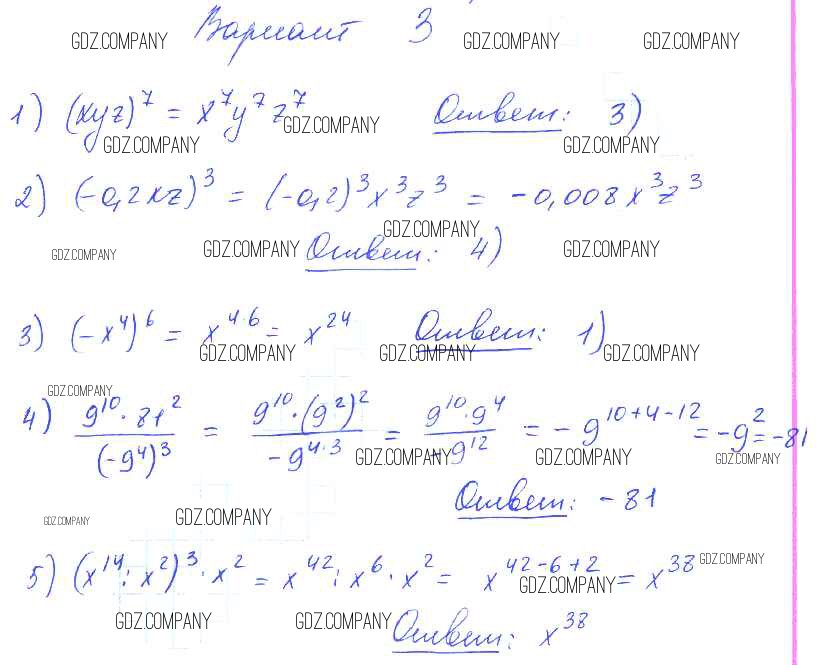 Вариант 3
GDZ.COMPANY GDZ.COMPANY GDZ.COMPANY
1) (xyz)⁷ = x⁷y⁷z⁷ Ответ: 3)
GDZ.COMPANY
GDZ.COMPANY GDZ.COMPANY
2) (-0,2xz)³ = (-0,2)³x³z³ = -0,008x³z³
GDZ.COMPANY
GDZ.COMPANY GDZ.COMPANY Ответ: 4) GDZ.COMPANY
3) (-x⁴)⁶ = x⁴·⁶ = x²⁴ Ответ: 1)
GDZ.COMPANY GDZ.COMPANY GDZ.COMPANY
GDZ.COMPANY
4) 9¹⁰·81²/(-9⁴)³ = 9¹⁰·(9²)²/-9⁴·³ = 9¹⁰·9⁴/-9¹² = -9¹⁰⁺⁴⁻¹² = -9² = -81
GDZ.COMPANY GDZ.COMPANY GDZ.COMPANY
Ответ: -81
GDZ.COMPANY GDZ.COMPANY
5) (x¹⁴:x²)³·x² = x⁴²:x⁶·x² = x⁴²⁻⁶⁺² = x³⁸ GDZ.COMPANY
GDZ.COMPANY
GDZ.COMPANY GDZ.COMPANY Ответ: x³⁸